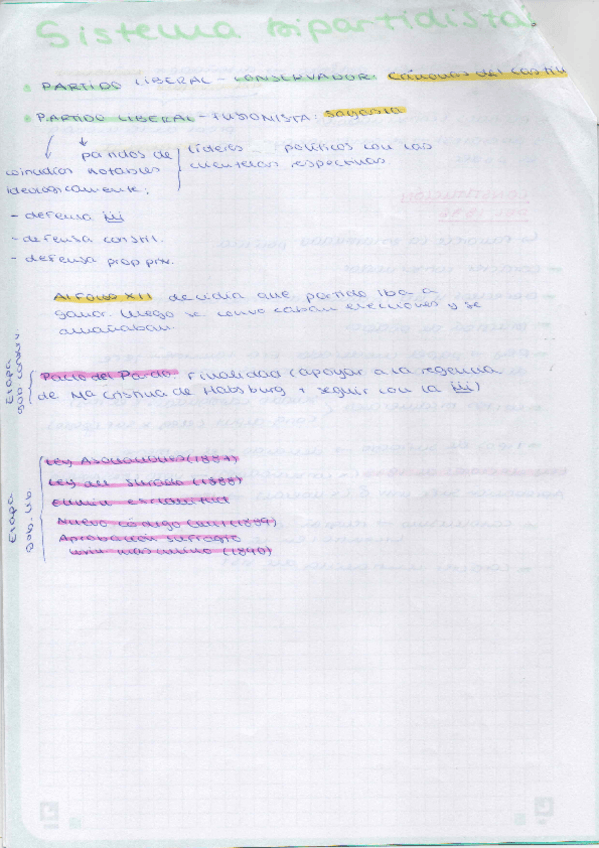 Sistema bipartidista:
PARTIDO LIBERAL - CONSERVADOR: Cánovas del Castill
PARTIDO LIBERAL - FUSIONISTA: Sagasta
partidos de
notables
líderes políticos con sus
clientelas respectivas.
coincidían
ideologicamente:
- defensa
- defensa constit.
- defensa prop priv.
Alfonso XII decidía que partido iba a
ganar. Luego se convocaban elecciones y se
amañaban.
Etapa
gob. conserv
Pacto del Pardo: Finalidad (apoyar a la regencia
de Ma Cristina de Habsburg + seguir con la
Etapa
gob. lib
Ley Asociaciones (1887)
Ley del Jurado (1888)
Nuevo código civil (1889)
Aprobación sufragio
univ masculino (1890)